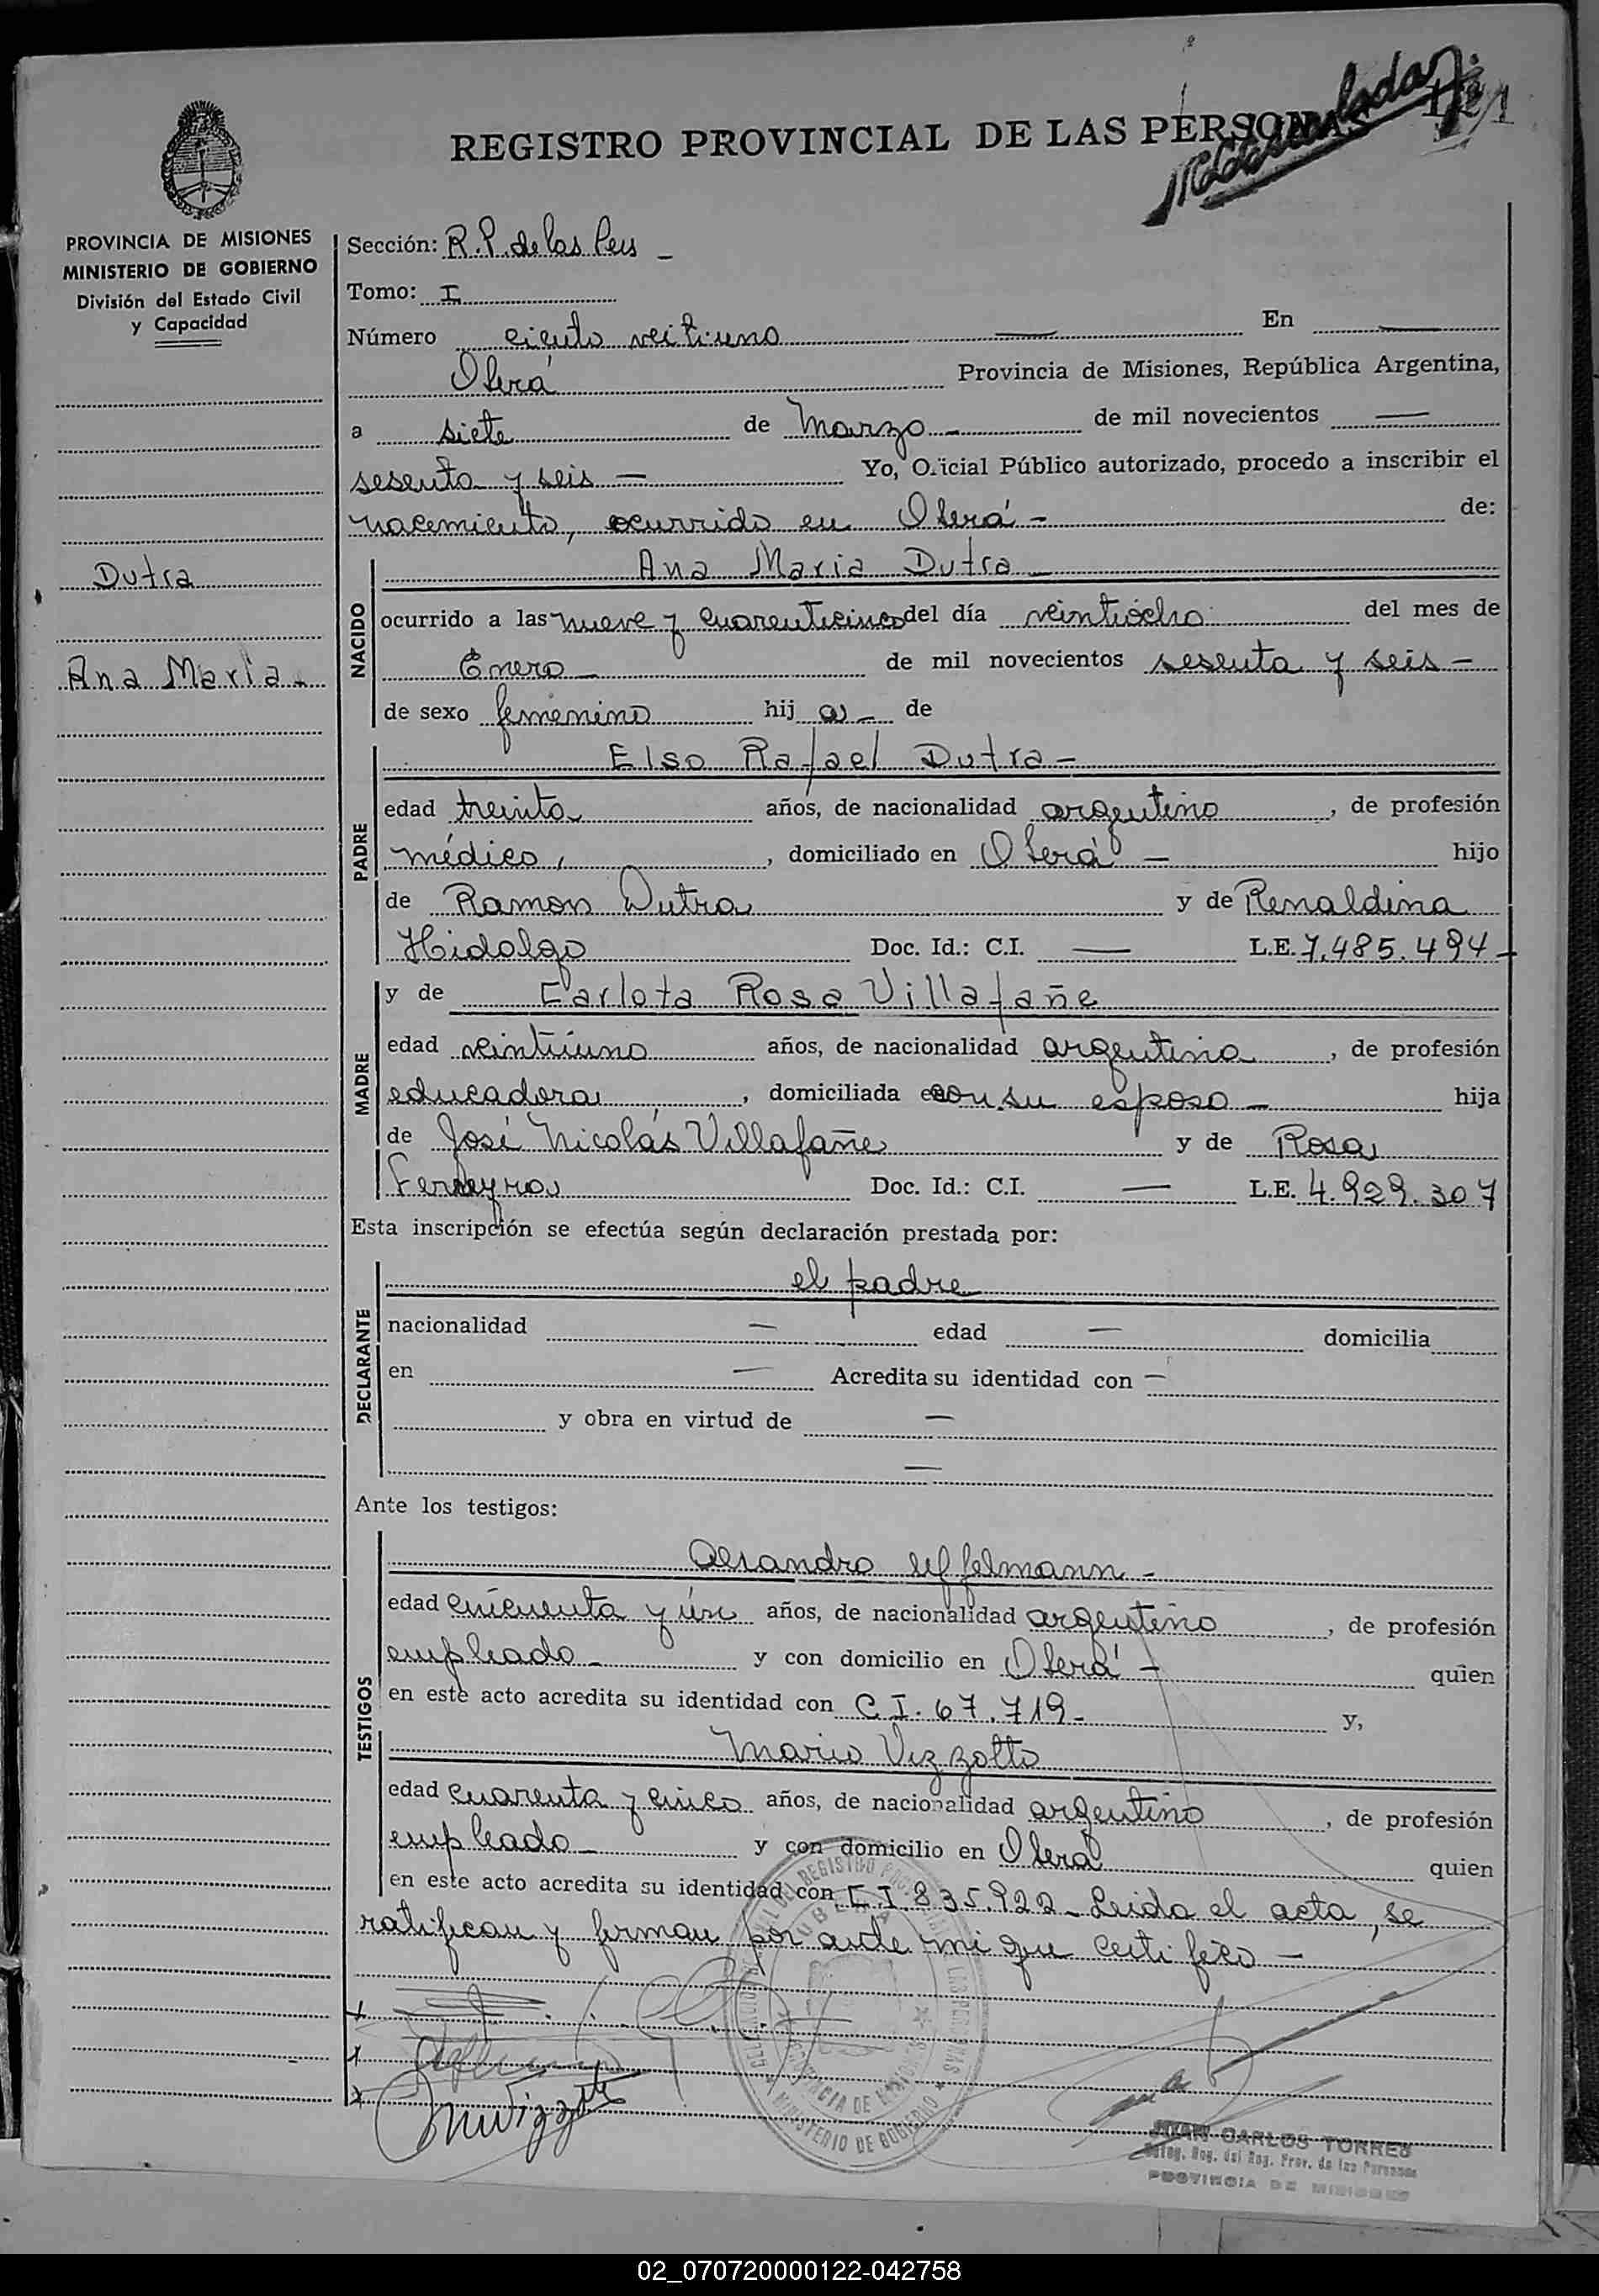 121
REGISTRO PROVINCIAL DE LAS PERSONAS
PROVINCIA DE MISIONES
MINISTERIO DE GOBIERNO
División del Estado Civil
y Capacidad
Dutra
Ana Maria -
Sección: R.P. de las Pers -
Tomo: I
Número ciento veitiuno — En —
Oberá Provincia de Misiones, República Argentina,
a siete de Marzo - de mil novecientos —
sesenta y seis — Yo, Oficial Público autorizado, procedo a inscribir el
nacemiento, ocurrido en Oberá - de:
NACIDO
Ana Maria Dutra -
ocurrido a las nueve y cuarenticinco del día veintiocho del mes de
Enero - de mil novecientos sesenta y seis -
de sexo femenino hij a - de
PADRE
Elso Rafael Dutra -
edad treinta años, de nacionalidad argentino, de profesión
médico, , domiciliado en Oberá - hijo
de Ramon Dutra y de Renaldina
Hidalgo Doc. Id.: C.I. — L.E. 7.485.494 -
MADRE
y de Carlota Rosa Villafañe
edad veintiuno años, de nacionalidad argentina, de profesión
educadora, domiciliada en con su esposo - hija
de José Nicolás Villafañe y de Rosa
Ferreyra Doc. Id.: C.I. — L.E. 4.929.307
Esta inscripción se efectúa según declaración prestada por:
DECLARANTE
el padre
nacionalidad — edad — domicilia
en — Acredita su identidad con —
y obra en virtud de —
—
Ante los testigos:
TESTIGOS
Uffelmann -
edad cincuenta y un años, de nacionalidad argentino, de profesión
empleado - y con domicilio en Oberá - quien
en este acto acredita su identidad con C.I. 67.719 - y,
Mario Vizzotto
edad cuarenta y cinco años, de nacionalidad argentino, de profesión
empleado - y con domicilio en Oberá quien
en este acto acredita su identidad con C.I 835.922 - Leida el acta, se
ratifican y firman por ante mi que certifico -
MINISTERIO DE GOBIERNO
PROVINCIA DE MISIONES
JUAN CARLOS TORRES
PROVINCIA DE MISIONES
02_070720000122-042758